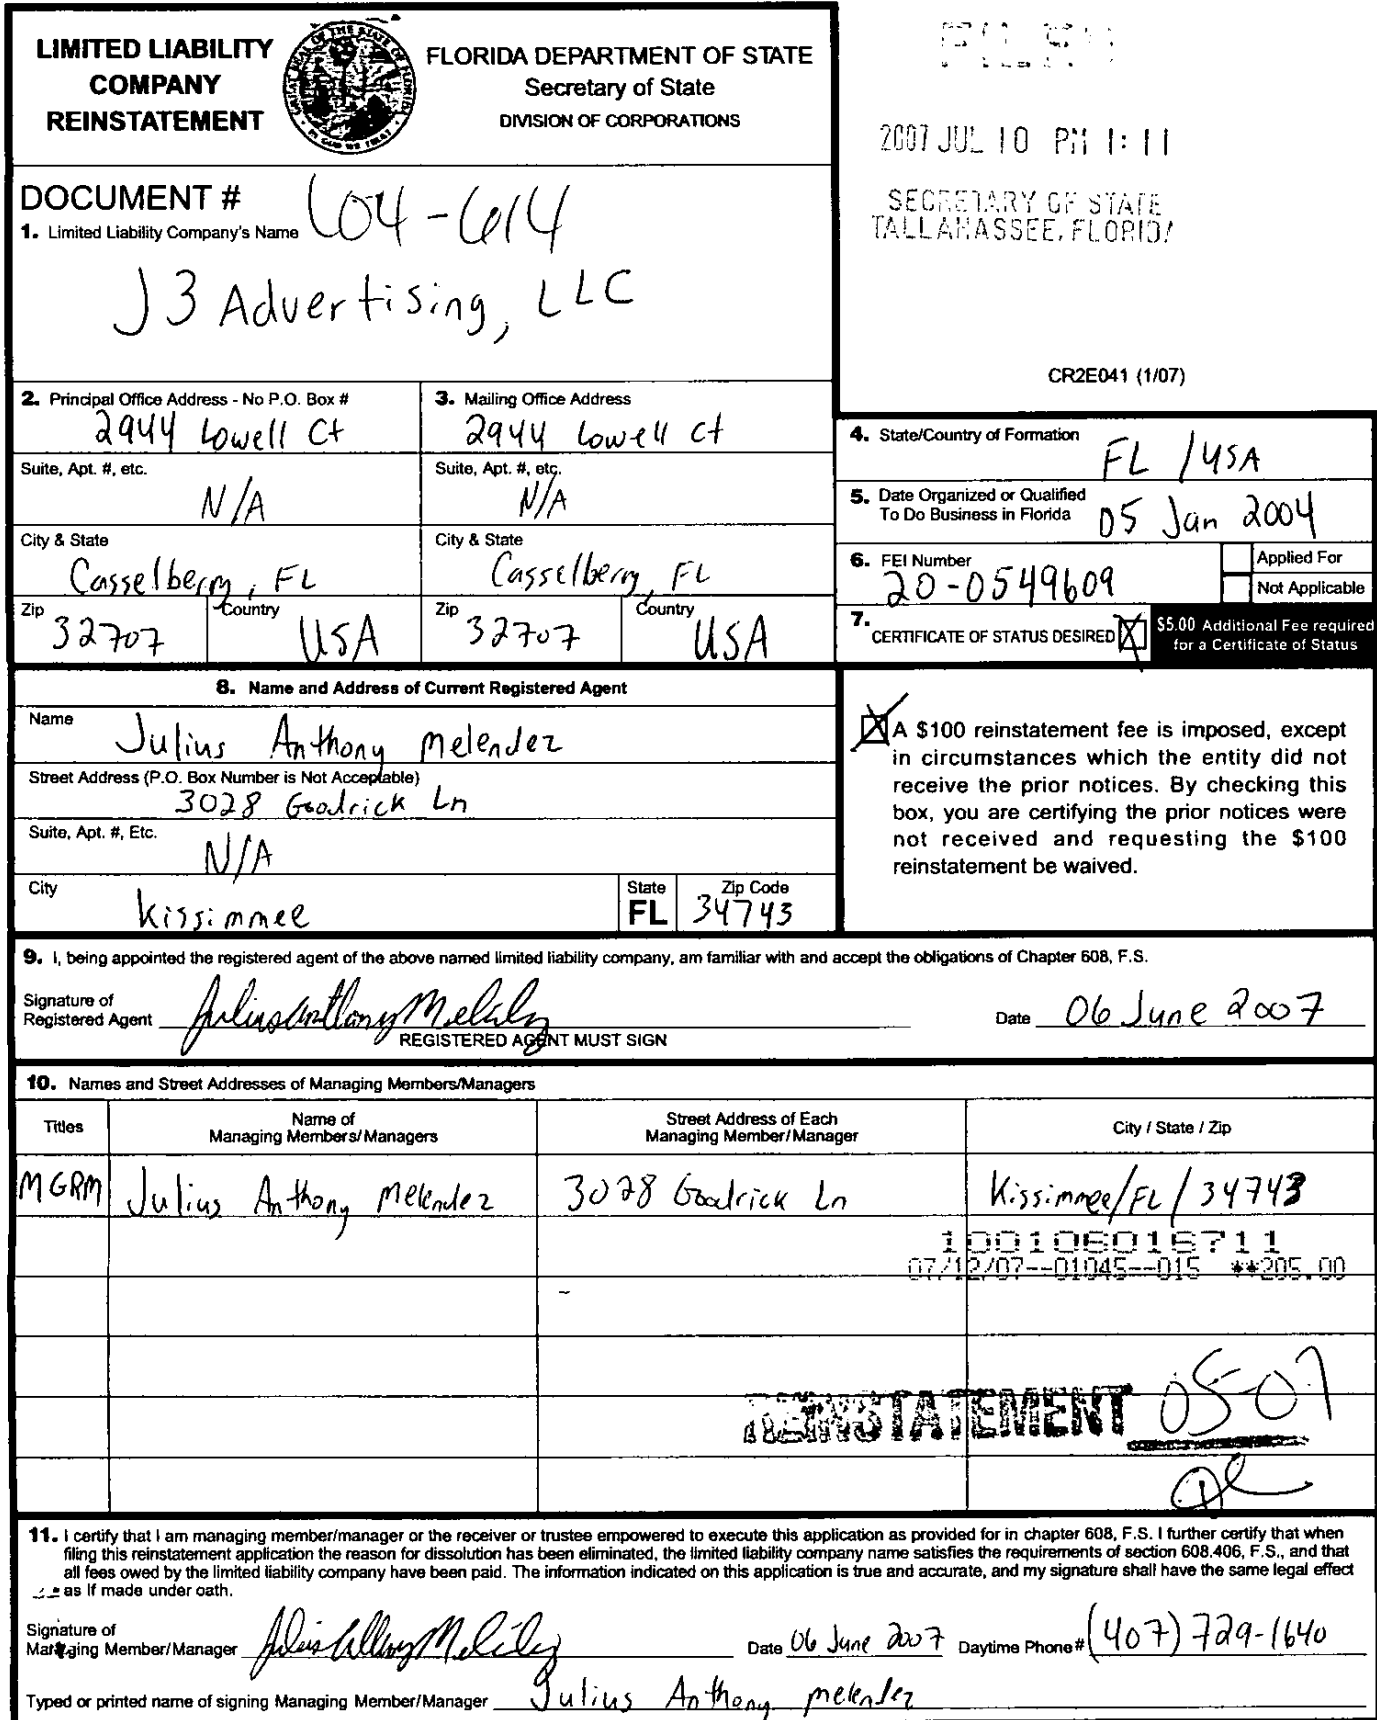 LIMITED LIABILITY
COMPANY
REINSTATEMENT
FLORIDA DEPARTMENT OF STATE
Secretary of State
DIVISION OF CORPORATIONS
FILED
2007 JUL 10 PM 1:11
SECRETARY OF STATE
TALLAHASSEE, FLORIDA
DOCUMENT # L04-614
1. Limited Liability Company's Name
J3 Advertising, LLC
CR2E041 (1/07)
2. Principal Office Address - No P.O. Box #
2944 Lowell Ct
3. Mailing Office Address
2944 Lowell Ct
Suite, Apt. #, etc.
N/A
Suite, Apt. #, etc.
N/A
City & State
Casselberry, FL
City & State
Casselberry, FL
Zip
32707
Country
USA
Zip
32707
Country
USA
4. State/Country of Formation
FL / USA
5. Date Organized or Qualified
To Do Business in Florida
05 Jan 2004
6. FEI Number
20-0549609
Applied For
Not Applicable
7. CERTIFICATE OF STATUS DESIRED X
$5.00 Additional Fee required
for a Certificate of Status
8. Name and Address of Current Registered Agent
Name
Julius Anthony Melendez
Street Address (P.O. Box Number is Not Acceptable)
3028 Goodrick Ln
Suite, Apt. #, Etc.
N/A
City
Kissimmee
State
FL
Zip Code
34743
X A $100 reinstatement fee is imposed, except
in circumstances which the entity did not
receive the prior notices. By checking this
box, you are certifying the prior notices were
not received and requesting the $100
reinstatement be waived.
9. I, being appointed the registered agent of the above named limited liability company, am familiar with and accept the obligations of Chapter 608, F.S.
Signature of
Registered Agent Julius Anthony Melendez
REGISTERED AGENT MUST SIGN
Date 06 June 2007
10. Names and Street Addresses of Managing Members/Managers
Titles
Name of
Managing Members/Managers
Street Address of Each
Managing Member/Manager
City / State / Zip
MGRM Julius Anthony Melendez 3028 Goodrick Ln Kissimmee/FL/34743
100106016711
07/12/07--01045--015 **205.00
REINSTATEMENT 05-07
11. I certify that I am managing member/manager or the receiver or trustee empowered to execute this application as provided for in chapter 608, F.S. I further certify that when
filing this reinstatement application the reason for dissolution has been eliminated, the limited liability company name satisfies the requirements of section 608.406, F.S., and that
all fees owed by the limited liability company have been paid. The information indicated on this application is true and accurate, and my signature shall have the same legal effect
as if made under oath.
Signature of
Managing Member/Manager Julius Anthony Melendez
Date 06 June 2007 Daytime Phone # (407) 729-1640
Typed or printed name of signing Managing Member/Manager Julius Anthony Melendez